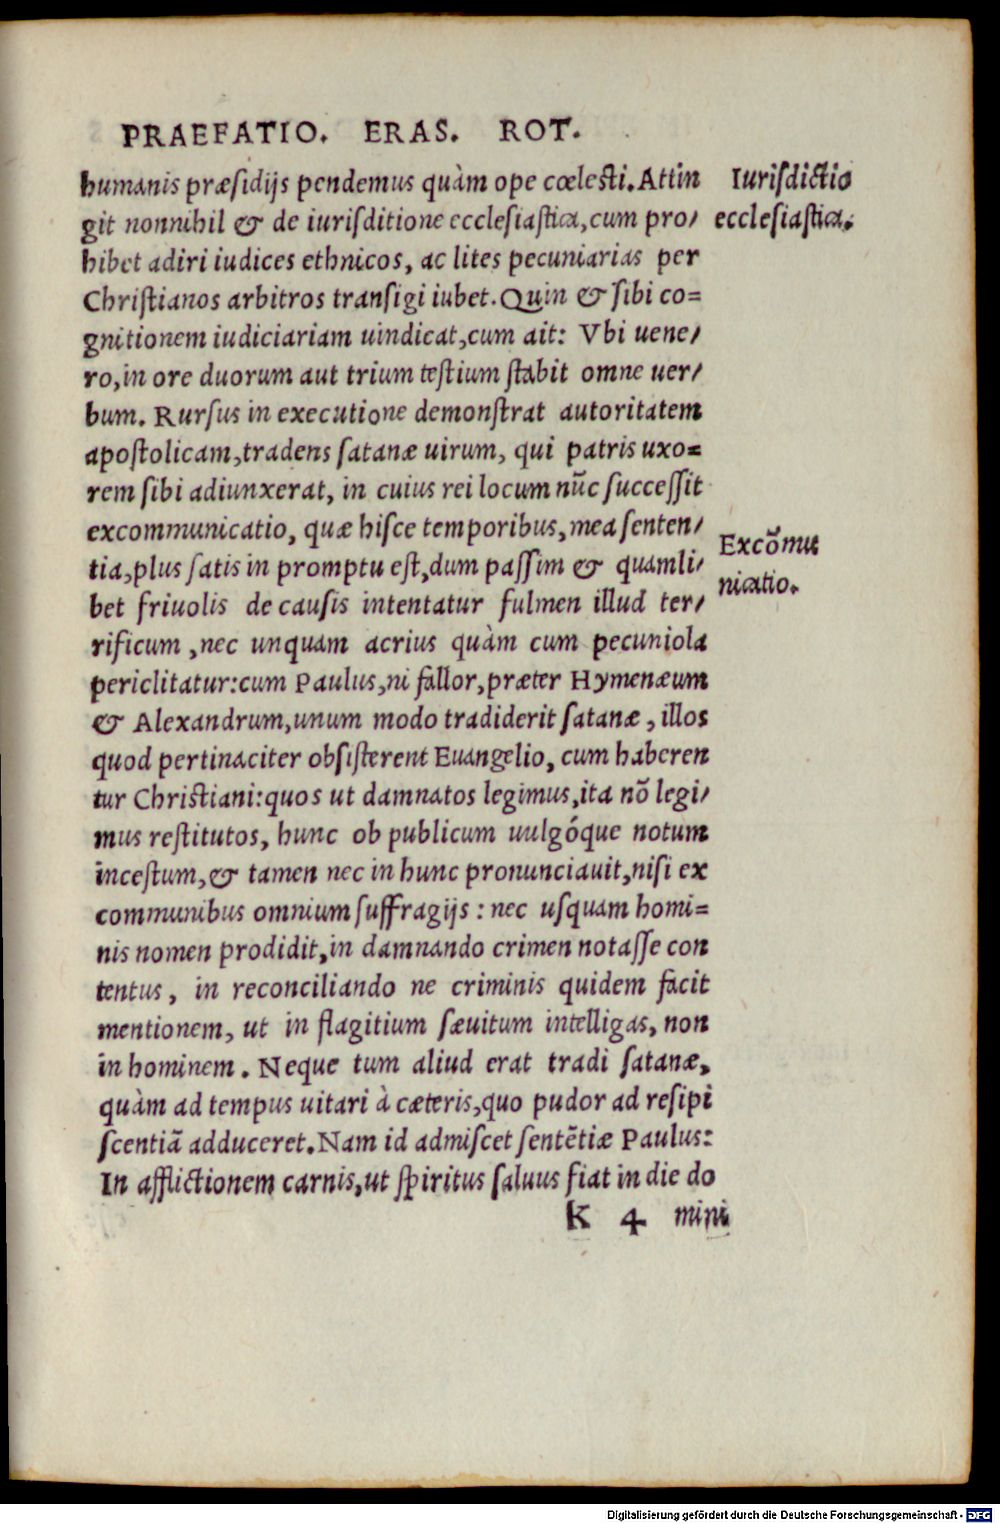 PRAEFATIO. ERAS. ROT.
humanis præsidijs pendemus quàm ope cœlesti. Attin
git nonnihil & de iurisditione ecclesiastica, cum pro/
hibet adiri iudices ethnicos, ac lites pecuniarias per
Christianos arbitros transigi iubet. Quin & sibi co=
gnitionem iudiciariam uindicat, cum ait: Vbi uene/
ro, in ore duorum aut trium testium stabit omne uer/
bum. Rursus in executione demonstrat autoritatem
apostolicam, tradens satanæ uirum, qui patris uxo=
rem sibi adiunxerat, in cuius rei locum nūc successit
excommunicatio, quæ hisce temporibus, mea senten/
tia, plus satis in promptu est, dum passim & quamli/
bet friuolis de causis intentatur fulmen illud ter/
rificum, nec unquam acrius quàm cum pecuniola
periclitatur: cum Paulus, ni fallor, præter Hymenæum
& Alexandrum, unum modo tradiderit satanæ, illos
quod pertinaciter obsisterent Euangelio, cum haberen
tur Christiani: quos ut damnatos legimus, ita nō legi/
mus restitutos, hunc ob publicum uulgóque notum
incestum, & tamen nec in hunc pronunciauit, nisi ex
communibus omnium suffragijs: nec usquam homi=
nis nomen prodidit, in damnando crimen notasse con
tentus, in reconciliando ne criminis quidem facit
mentionem, ut in flagitium sæuitum intelligas, non
in hominem. Neque tum aliud erat tradi satanæ,
quàm ad tempus uitari à cæteris, quo pudor ad resipi
scentiā adduceret. Nam id admiscet sentētiæ Paulus:
In afflictionem carnis, ut spiritus saluus fiat in die do
K 4 mini
Iurisdictio
ecclesiastica.
Excōmu
nicatio.
Digitalisierung gefördert durch die Deutsche Forschungsgemeinschaft - DFG